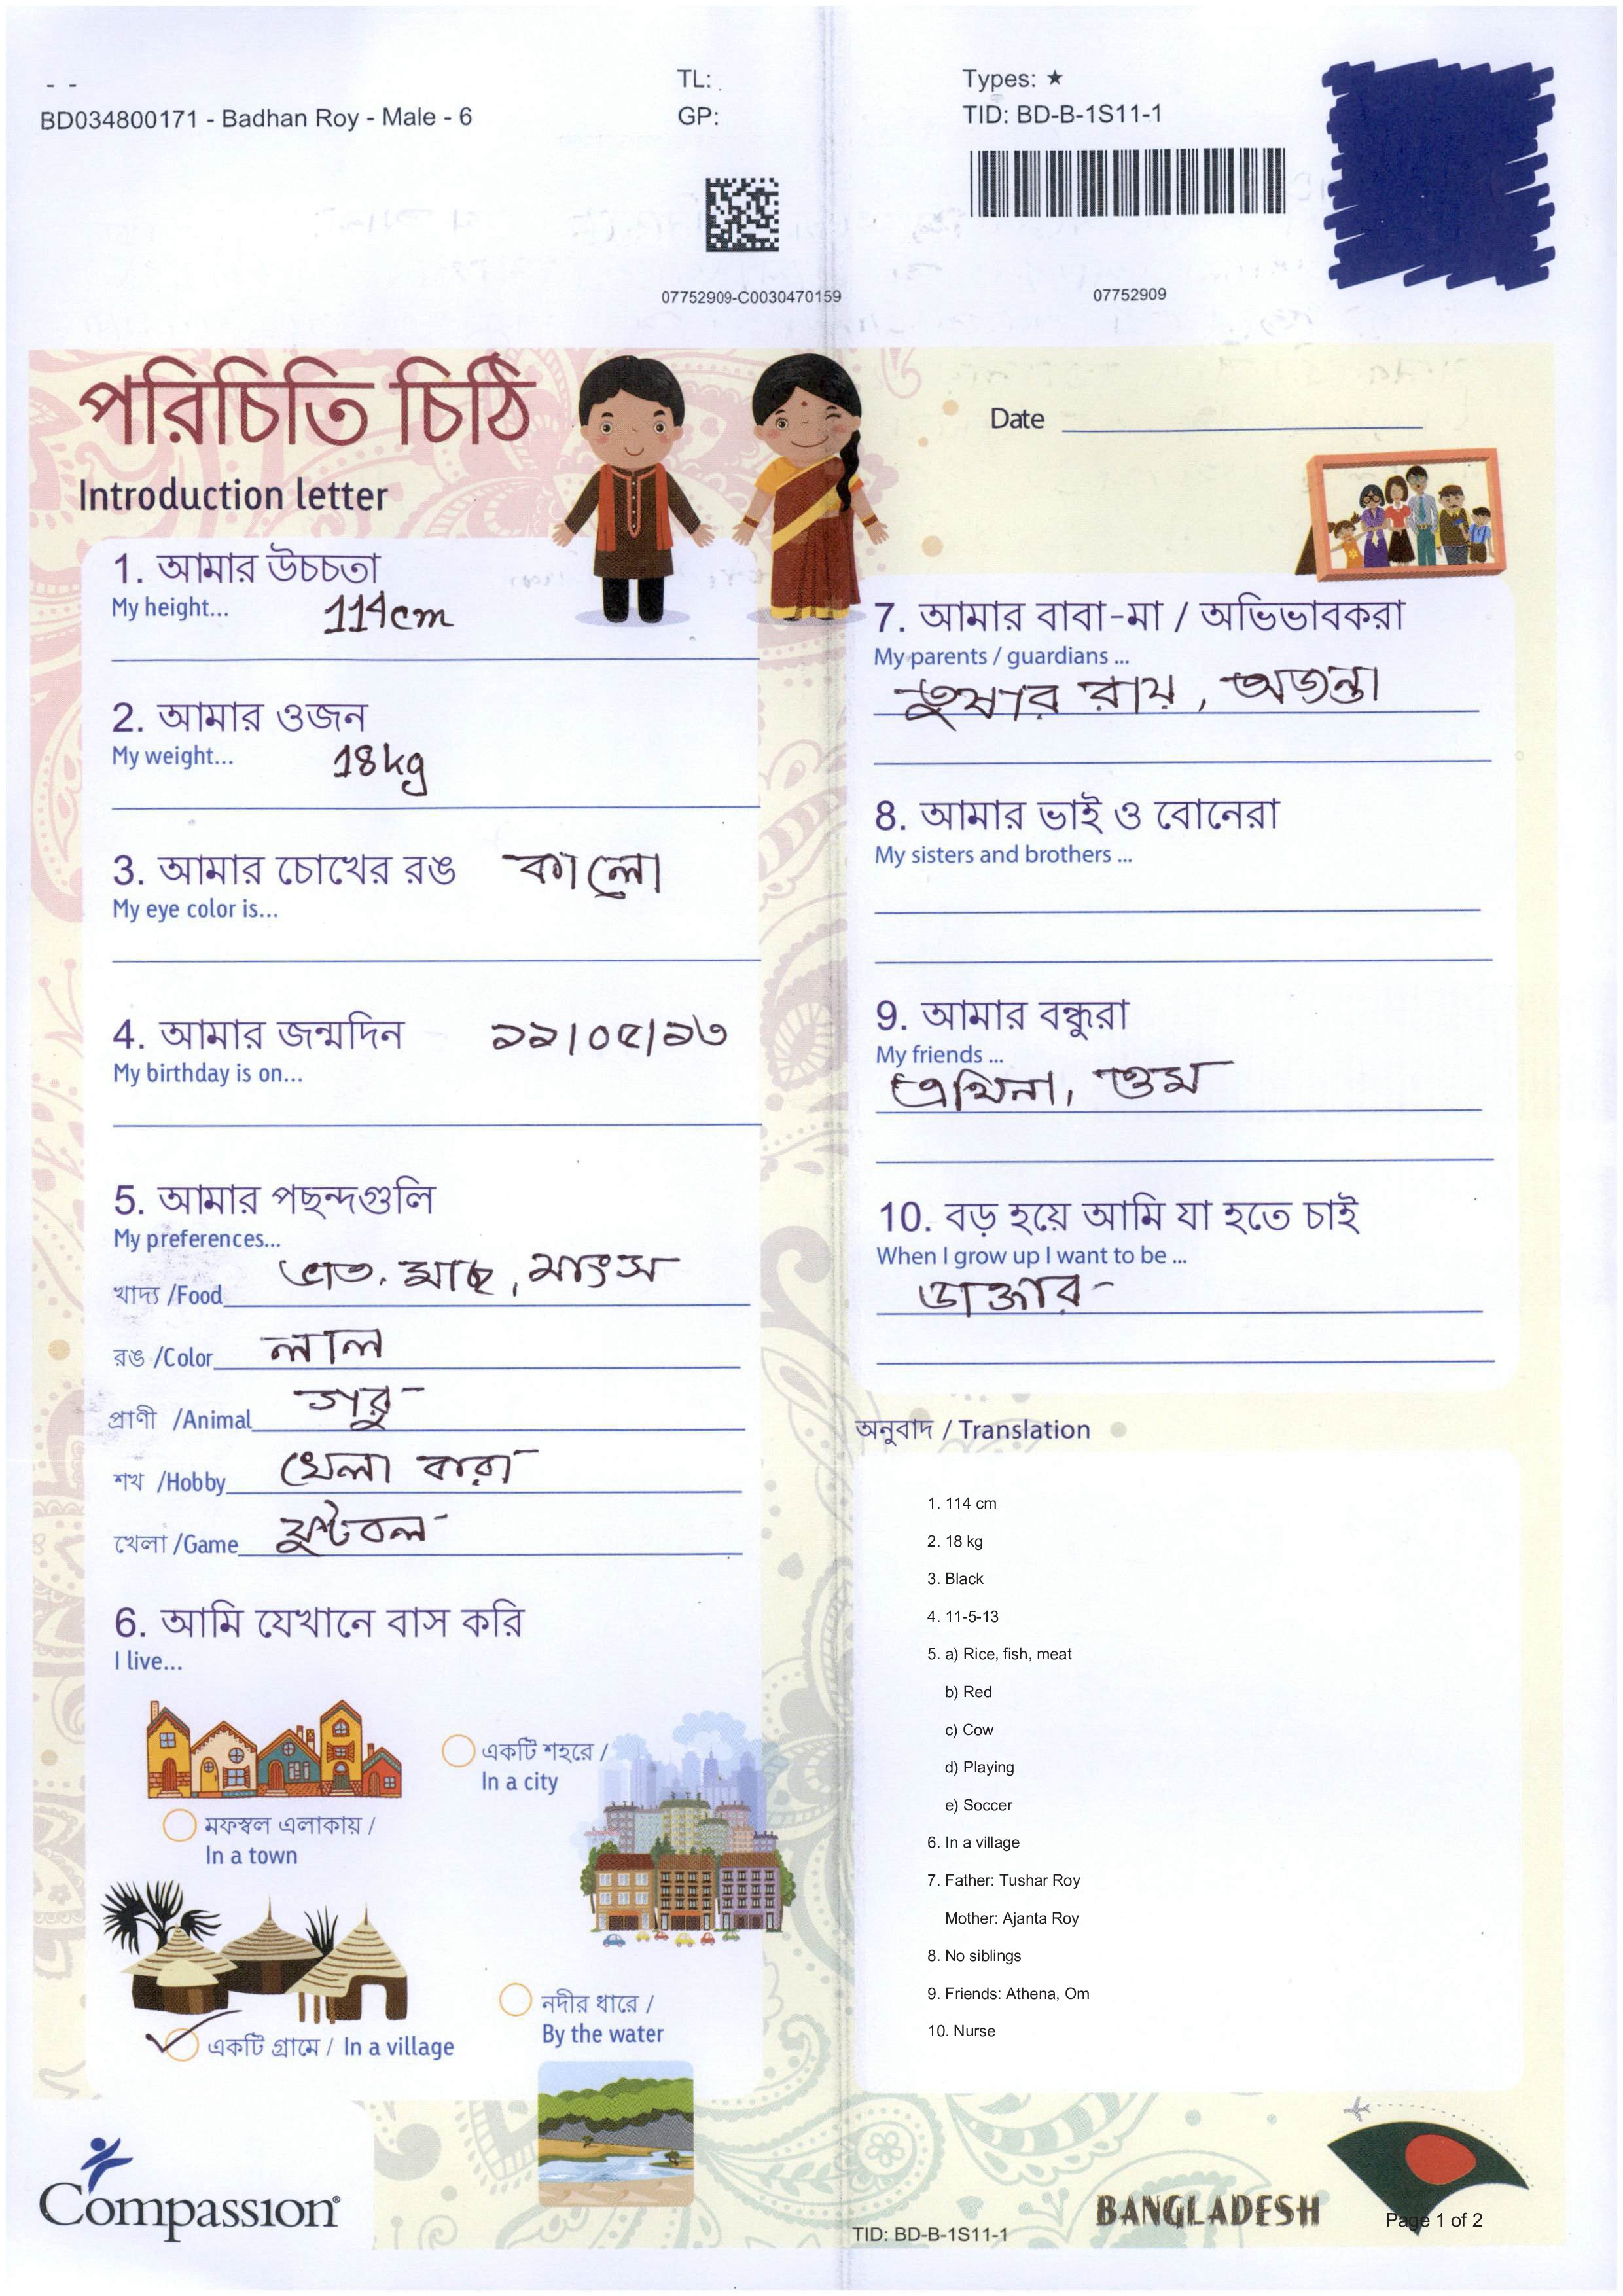 - -
BD034800171 - Badhan Roy - Male - 6
TL:
GP:
Types: ★
TID: BD-B-1S11-1
07752909-C0030470159
07752909
পরিচিতি চিঠি
Introduction letter
Date
1. আমার উচচতা
My height...
114cm
2. আমার ওজন
My weight...
18kg
3. আমার চোখের রঙ কালো
My eye color is...
4. আমার জন্মদিন ১১/০৫/১৩
My birthday is on...
5. আমার পছন্দগুলি
My preferences...
খাদ্য /Food ভাত, মাছ, মাংস
রঙ /Color লাল
প্রাণী /Animal গরু
শখ /Hobby খেলা করা
খেলা /Game ফুটবল
6. আমি যেখানে বাস করি
I live...
একটি শহরে /
In a city
মফস্বল এলাকায় /
In a town
নদীর ধারে /
By the water
একটি গ্রামে / In a village
7. আমার বাবা-মা / অভিভাবকরা
My parents / guardians ...
তুষার রায়, অজন্তা
8. আমার ভাই ও বোনেরা
My sisters and brothers ...
9. আমার বন্ধুরা
My friends ...
এথিনা, ওম
10. বড় হয়ে আমি যা হতে চাই
When I grow up I want to be ...
ডাক্তার
অনুবাদ / Translation
1. 114 cm
2. 18 kg
3. Black
4. 11-5-13
5. a) Rice, fish, meat
b) Red
c) Cow
d) Playing
e) Soccer
6. In a village
7. Father: Tushar Roy
Mother: Ajanta Roy
8. No siblings
9. Friends: Athena, Om
10. Nurse
Compassion®
TID: BD-B-1S11-1
BANGLADESH
Page 1 of 2